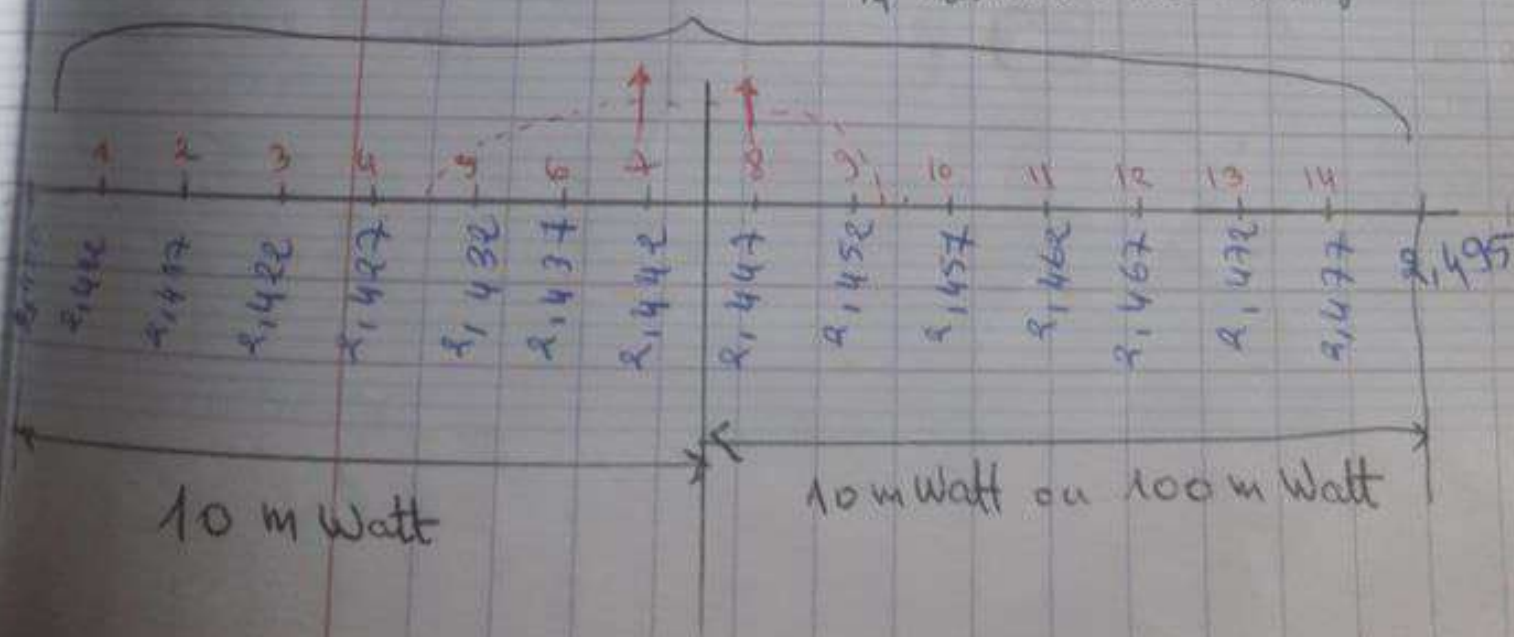 1 2 3 4 5 6 7 8 9 10 11 12 13 14
2,412 2,417 2,422 2,427 2,432 2,437 2,442 2,447 2,452 2,457 2,462 2,467 2,472 2,477 2,495
10 m Watt
10 m Watt ou 100 m Watt